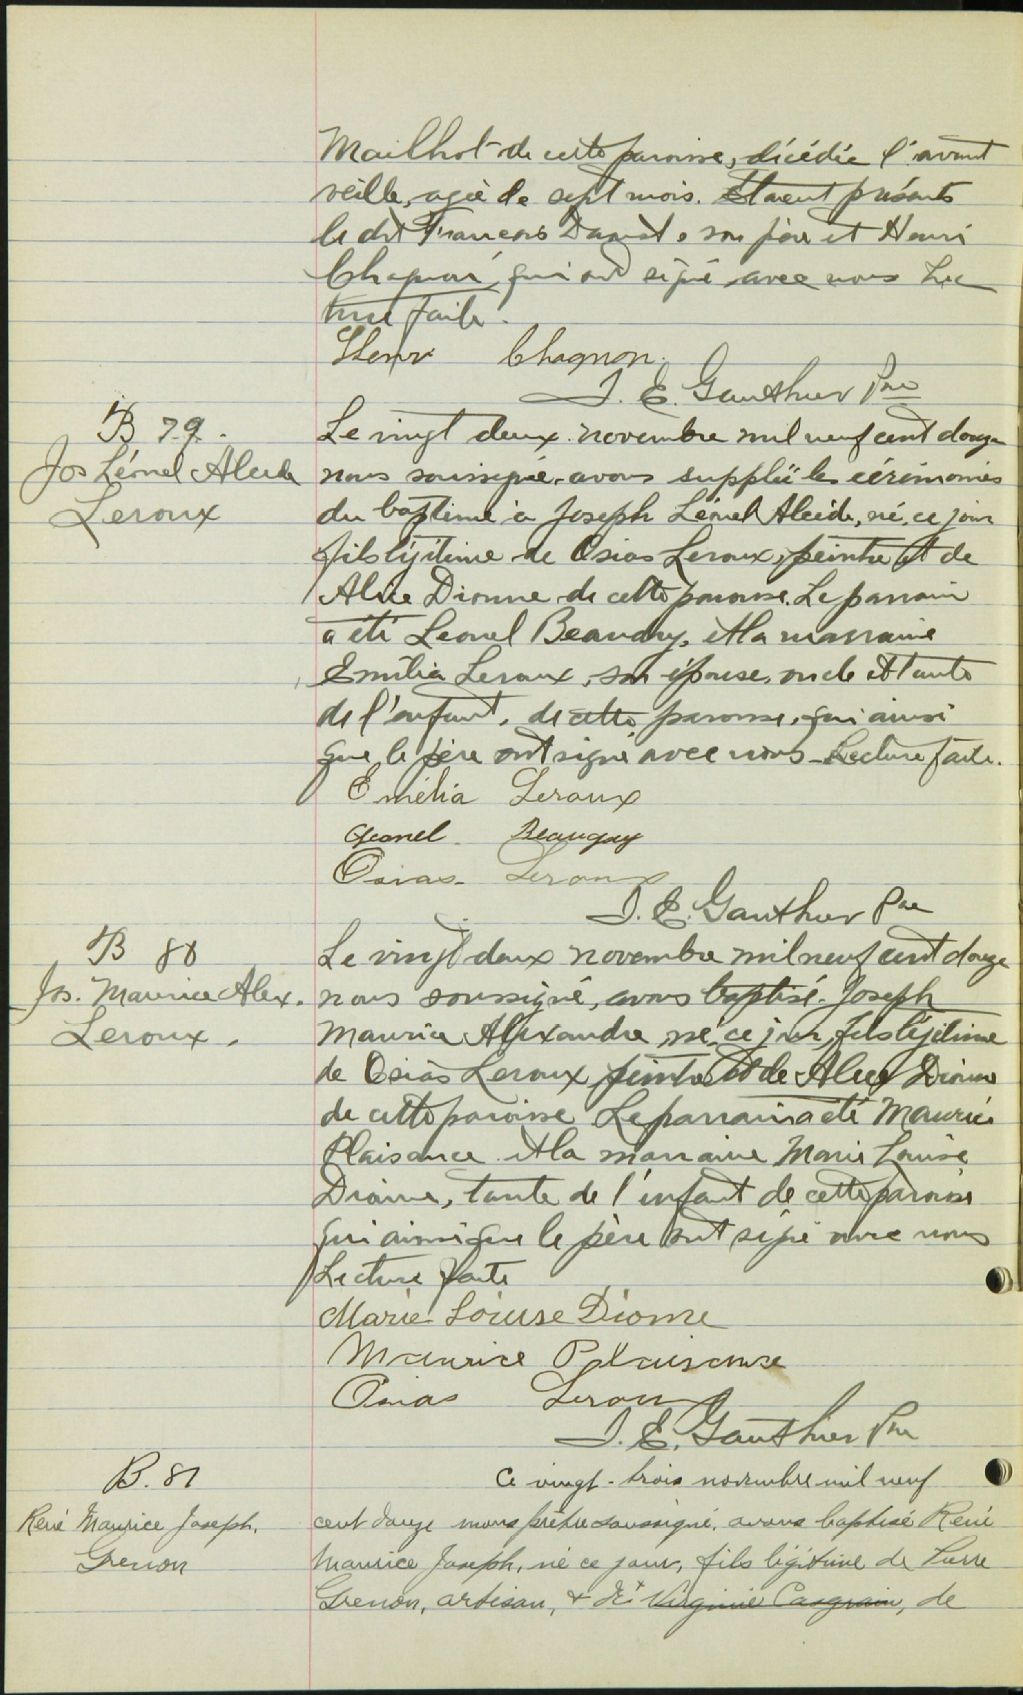 Mailhot de cette paroisse, décédée l'avant
veille, agée de sept mois. Etaient présents
le dit François, son père et Henri
qui ont signé avec nous Lec
ture faite.
Henri Chagnon.
J. E. Gauthier Ptre
B 79.
Jos Léonel Alcide
Leroux
Le vingt deux novembre mil neuf cent douze
nous soussigné, avons suppléé les cérémonies
du baptème à Joseph Léonel Alcide, né, ce jour
fils légitime de Osias Leroux, peintre et de
Alice Dionne de cette paroisse. Le parrain
a été Léonel Beaudry, et la marraine
Emélia Leroux, son épouse, oncle et tante
de l'enfant, de cette paroisse, qui ainsi
que le père ont signé avec nous - Lecture faite.
Emélia Leroux
Osias Leroux
J. E. Gauthier Ptre
B 80
Jos. Maurice Alex.
Leroux.
Le vingt deux novembre mil neuf cent douze
nous soussigné, avons baptisé Joseph
Maurice Alexandre, né, ce jour, fils légitime
de Osias Leroux peintre et de Alice Dionne
de cette paroisse Le parrain a été Maurice
Plaisance et la marraine Marie Louise
Dionne, tante de l'enfant de cette paroisse
qui ainsi que le père ont signé avec nous
Lecture faite
Marie Louise Dionne
Maurice Plaisance
Osias Leroux
J. E. Gauthier Ptre
B. 81
René Maurice Joseph.
Grenon
Ce vingt-trois novembre mil neuf
cent douze nous prêtre soussigné, avons baptisé René
Maurice Joseph, né ce jour, fils légitime de Pierre
Grenon, artisan, & de Virginie Casgrain, de